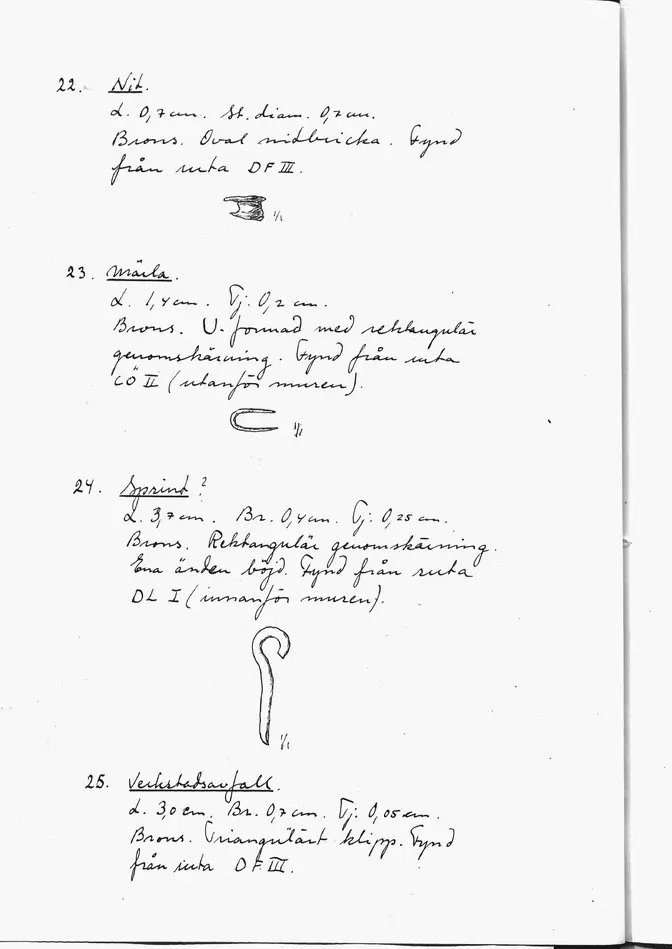 22. Nit.
L. 0,7 cm. St. diam. 0,7 cm.
Brons. Oval nitbricka. Fynd
från ruta DF III.
1/1
23. Märla.
L. 1,4 cm. Tj: 0,2 cm.
Brons. U-formad med rektangulär
genomskärning. Fynd från ruta
CÖ II (utanför muren).
1/1
24. Sprint?
L. 3,7 cm. Br. 0,4 cm. Tj: 0,25 cm.
Brons. Rektangulär genomskärning.
Ena änden böjd. Fynd från ruta
DL I (innanför muren).
1/1
25. Verkstadsavfall.
L. 3,0 cm. Br. 0,7 cm. Tj: 0,05 cm.
Brons. Triangulärt klipp. Fynd
från ruta DF III.